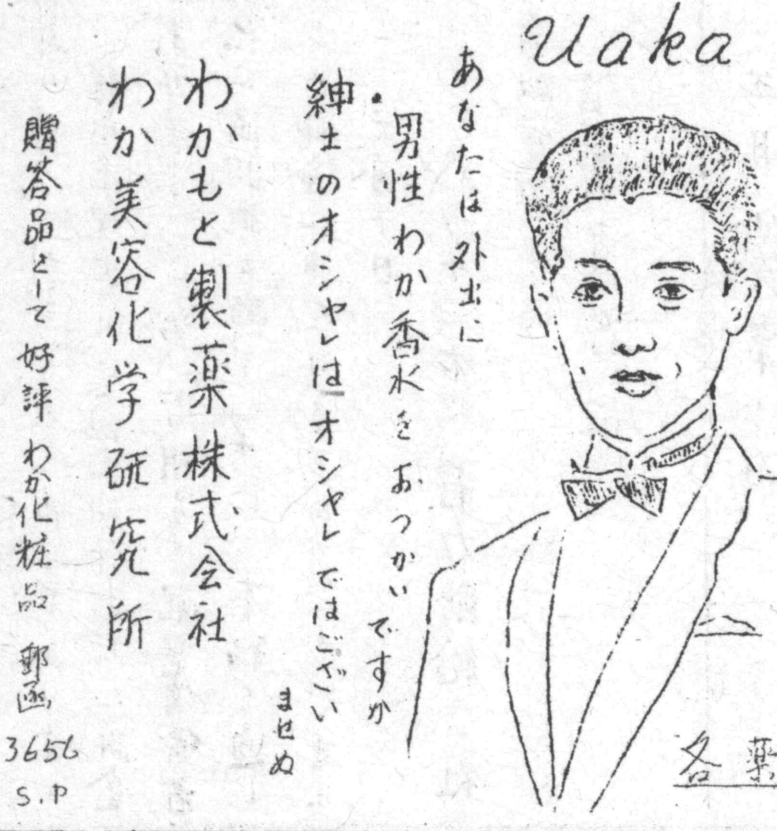 Uaka
あなたは外出に
男性わか香水をおつかいですか
紳士のオシャレはオシャレではございませぬ
わかもと製薬株式会社
わか美容化学研究所
贈答品として好評 わか化粧品 郵函
3656
S.P
各薬